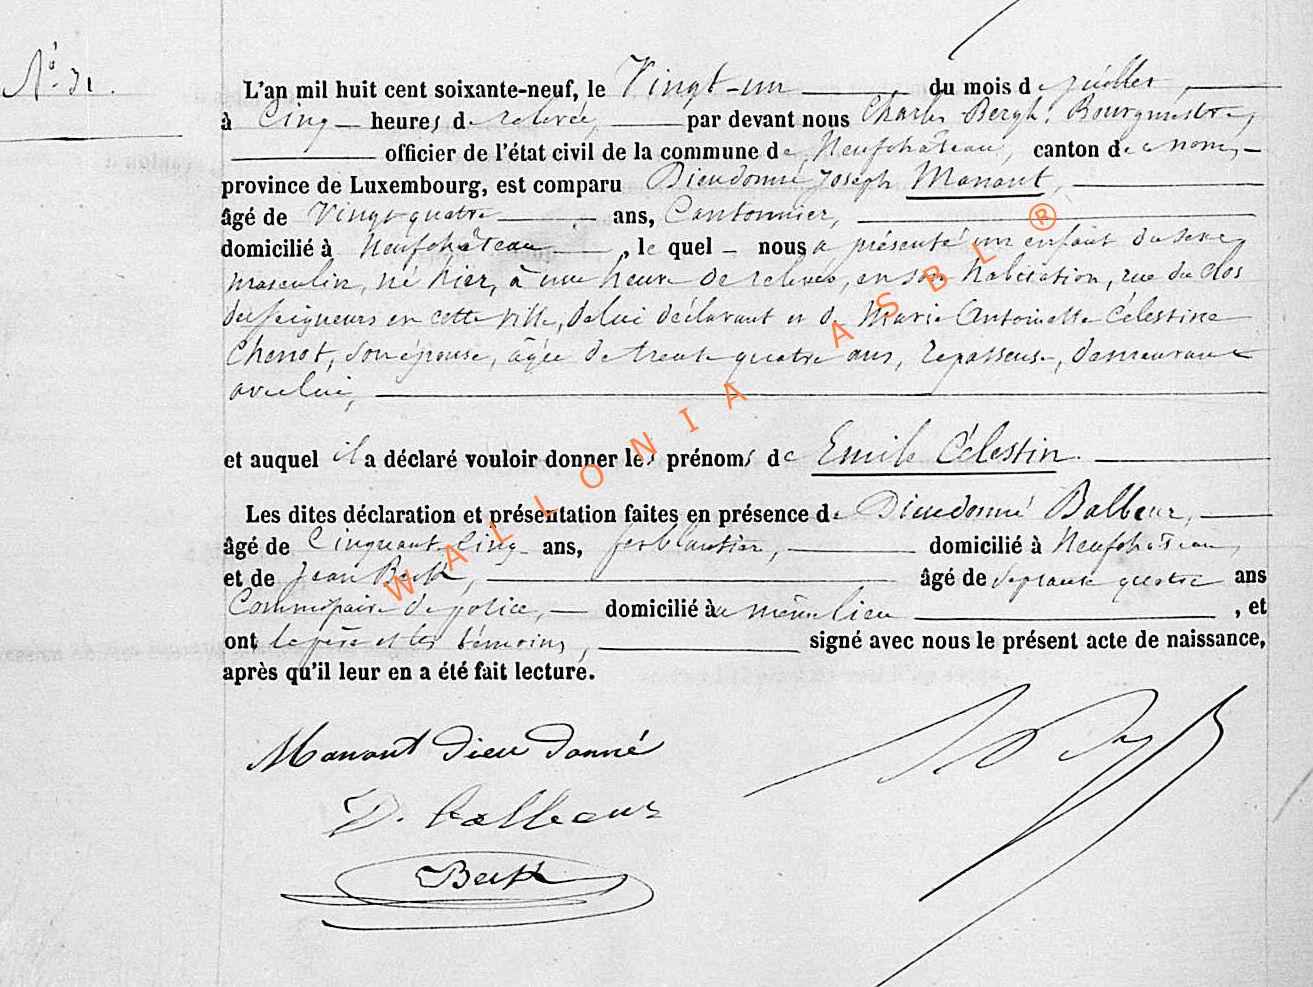 N° 31.
L'an mil huit cent soixante-neuf, le Vingt-un du mois de juillet,
à Cinq heures de relevée, par devant nous Charles Bergh, Bourgmestre,
officier de l'état civil de la commune de Neufchâteau, canton de ce nom,
province de Luxembourg, est comparu Dieudonné Joseph Manant,
âgé de Vingt quatre ans, Cantonnier,
domicilié à Neufchâteau, le quel nous a présenté un enfant du sexe
masculin, né hier, à une heure de relevée, en son habitation, rue du Clos
des seigneurs en cette ville, de lui déclarant et de Marie Antoinette Célestine
Chenot, son épouse, âgée de trente quatre ans, repasseuse, demeurant
avec lui,
et auquel il a déclaré vouloir donner les prénoms de Emile Célestin.
Les dites déclaration et présentation faites en présence de Dieudonné Balbeur,
âgé de Cinquante cinq ans, ferblantier, domicilié à Neufchâteau,
et de Jean Bertk, âgé de Septante quatre ans
Commissaire de police, domicilié au même lieu, et
ont le père et les témoins, signé avec nous le présent acte de naissance,
après qu'il leur en a été fait lecture.
Manant dieu donné
D. balbeur
WALLONIA ASBL ®